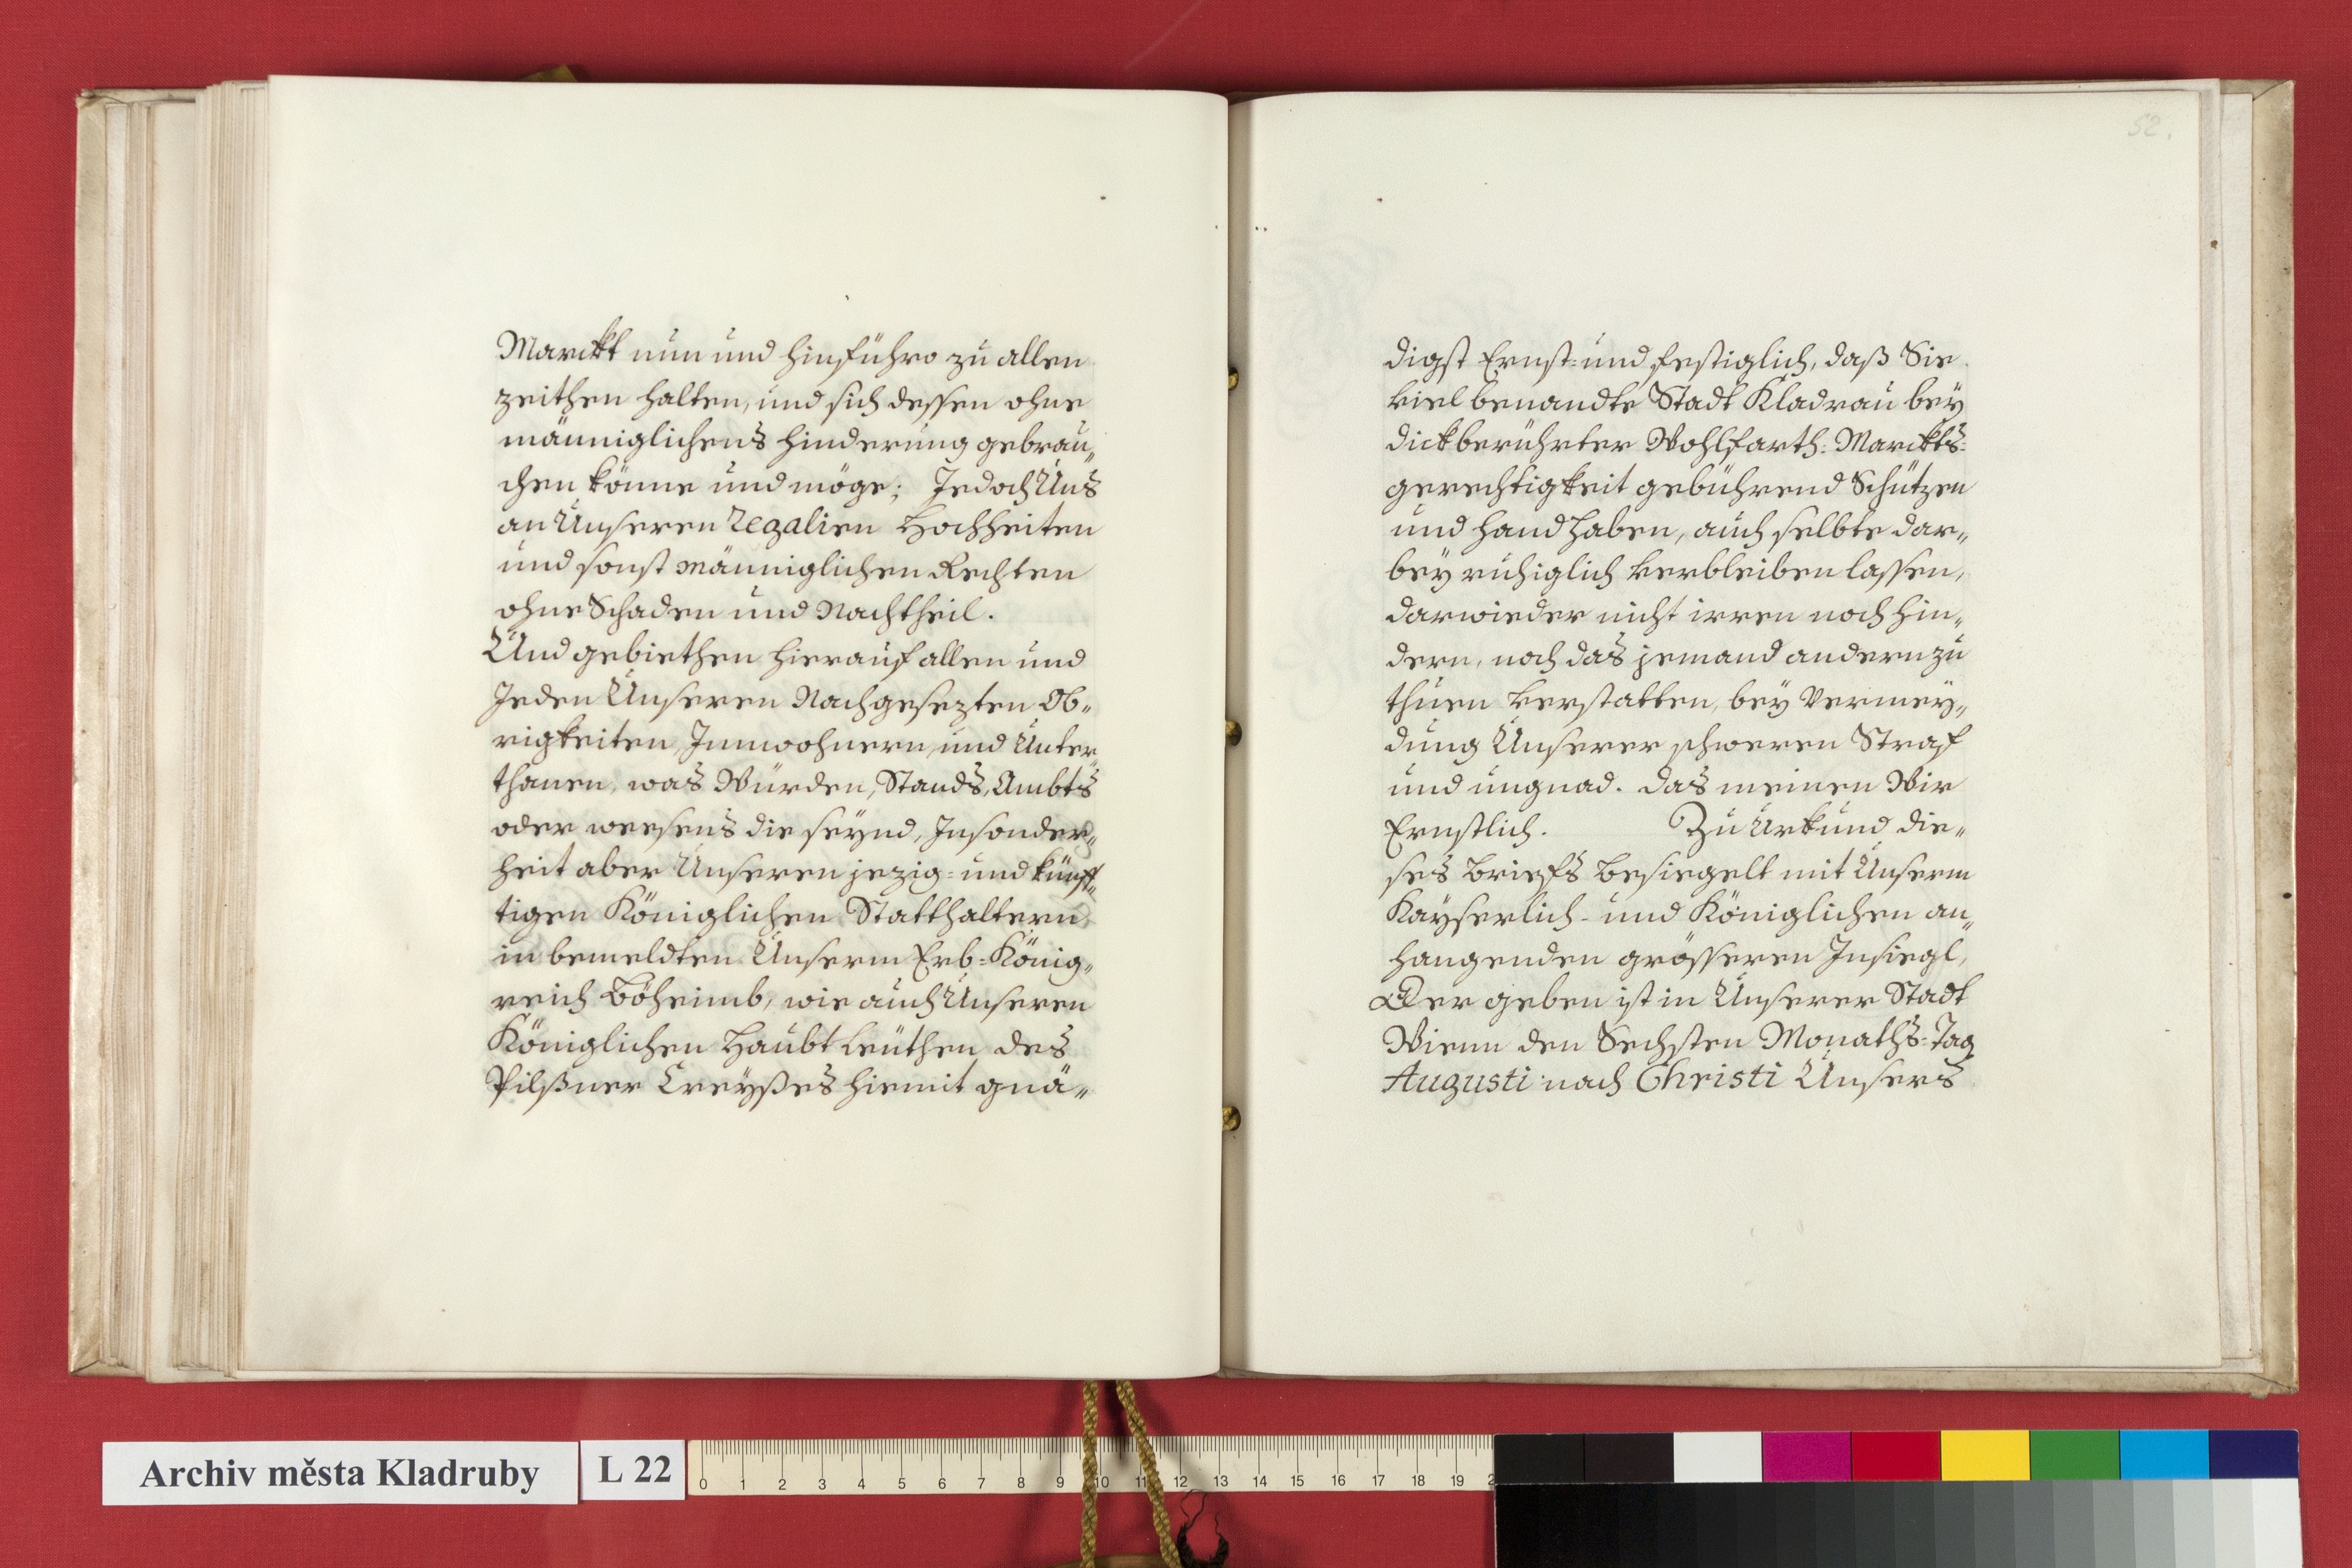 Marckt nun und hinführo zu allen
zeithen halten, und sich dessen ohne
männiglichens hinderung gebrau„
chen könne und möge; Jedoch Uns
an Unseren Regalien Hochheiten
und sonst männiglichen Rechten
ohne Schaden und Nachtheil.
Und gebiethen hierauf allen und
Jeden Unseren Nachgesezten Ob„
rigkeiten, Innwohnern, und Unter„
thanen, was Würden, Stands, Ambts
oder weesens die seynd, Insonder„
heit aber Unseren jezig= und künff„
tigen Königlichen Statthaltern
in bemeldten Unserm Erb=König„
reich Böheimb, wie auch Unseren
Königlichen Haubt leüthen des
Pilßner Creyßes hiemit gnä„
52.
digst Ernst= und festiglich, daß Sie
viel benandte Stadt Kladrau bey
dickberührter Wohlfarth: Marckts=
gerechtigkeit gebührend Schützen
und handhaben, auch selbte dar„
bey ruhiglich verbleiben lassen,
darwieder nicht irren noch hin„
dern, noch das jemand andern zu
thuen verstatten, bey Vermey„
dung Unserer schweren Straf
und ungnad. das meinen Wir
Ernstlich. Zu Urkund die„
ses briefs besiegelt mit Unserm
Kayserlich- und Königlichen an„
hangenden grösseren Insiegl,
Der geben ist in Unserer Stadt
Wienn den Sechsten Monaths=Tag
Augusti nach Christi Unsers
Archiv města Kladruby L 22
0 1 2 3 4 5 6 7 8 9 10 11 12 13 14 15 16 17 18 19 2